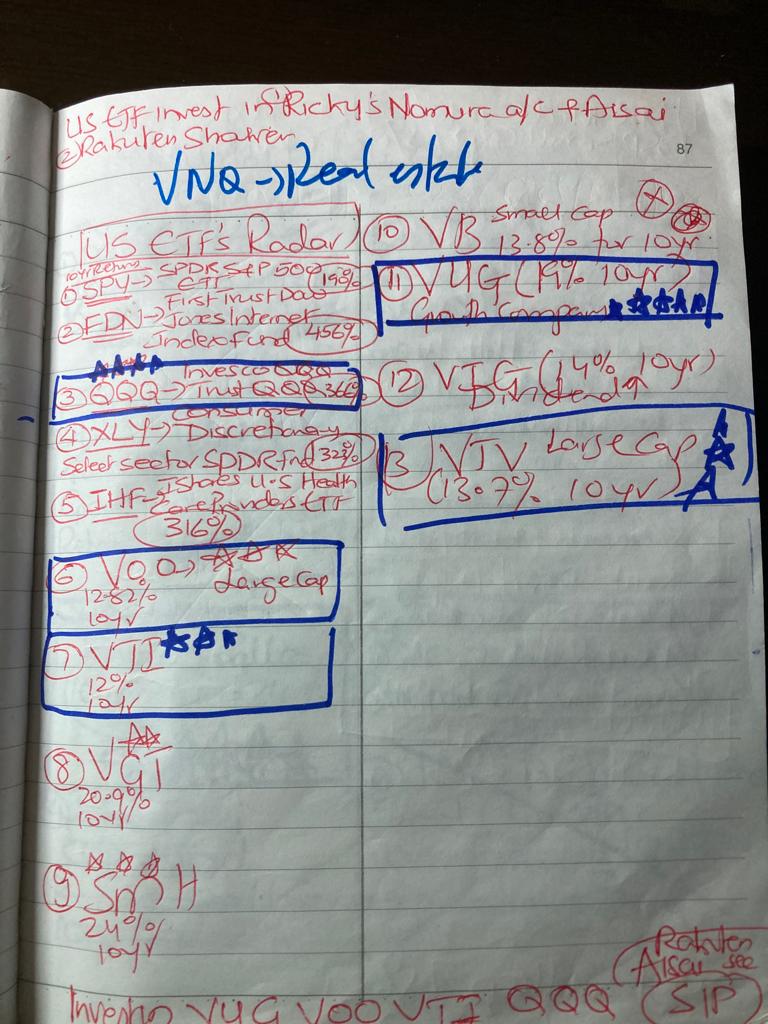 US ETF Invest in Ricky's Nomura a/c &
② Rakuten
87
VNQ → Real estate
US ETF's Radar
10yr Return
① SPY → SPDR S&P 500
ETF 190%
② FDN → First Trust Dow
Jones Internet
Index Fund 456%
③ QQQ → Invesco QQQ
Trust QQQ 366%
④ XLY → Consumer
Discretionary
Select sector SPDR Fnd 323%
⑤ IHF → IShares U.S Health
Care Providers ETF
316%
⑥ VOO → ☆☆☆
Large Cap
12.82%
10yr
⑦ VTI ☆☆☆
12%
10yr
⑧ VGT ☆☆
20.9%
10yr
☆☆☆
⑨ SMH
24%
10yr
⑩ VB Small Cap
13.8% for 10yr
⑪ VUG (19% 10yr)
Growth
⑫ VIG (14% 10yr)
Dividend
13 VTV Large Cap
(13.7% 10yr)
Rakuten
see
VUG VOO VTI QQQ (SIP)